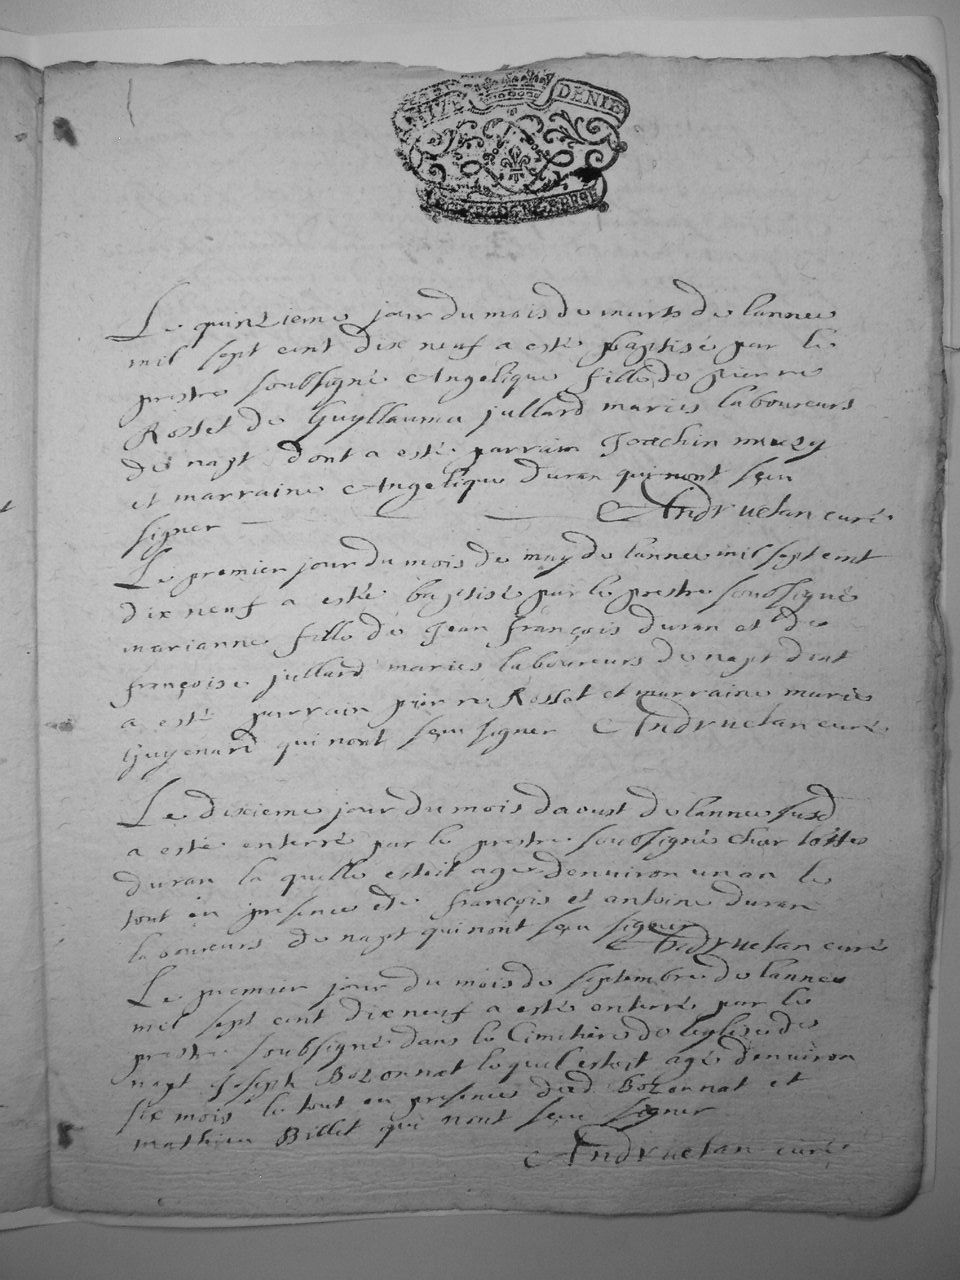 SEIZE DENIE
BOURGOGNE BRESSE
Le quinzieme jour du mois de marts de lannee
mil sept cent dix neuf a esté baptisé par le
prestre soubsigné Angelique fille de pierre
Rosset de Guyllauma jullard mariés laboureurs
de napt dont a esté parrain Joachin
et marraine Angelique Duran qui nont sçeu
signer Andruetan curé
Le premier jour du mois de may de lannee mil sept cent
dix neuf a esté baptisé par le prestre soubsigné
marianne fille de Jean françois duran et de
françoise jullard mariés laboureurs de napt dont
a esté parrain pierre Rosset et marraine mariee
Guyenard qui nont sçeu signer Andruetan curé
Le dixieme jour du mois daoust de lannee susd
a esté enterré par le prestre soubsigné charlottes
duran la quelle estoit agee denuiron un an le
tout en presence de françois et antoine duran
laboureurs de napt qui nont sçeu signer Andruetan curé
Le premier jour du mois de septembre de lannee
mil sept cent dix neuf a esté enterré par le
prestre soubsigné dans le Cimetiere de leglise de
napt joseph Bozonnat lequel estoit agé denuiron
six mois le tout en presence dud Bozonnat et
mathieu Billet qui nont sçeu signer
Andruetan curé